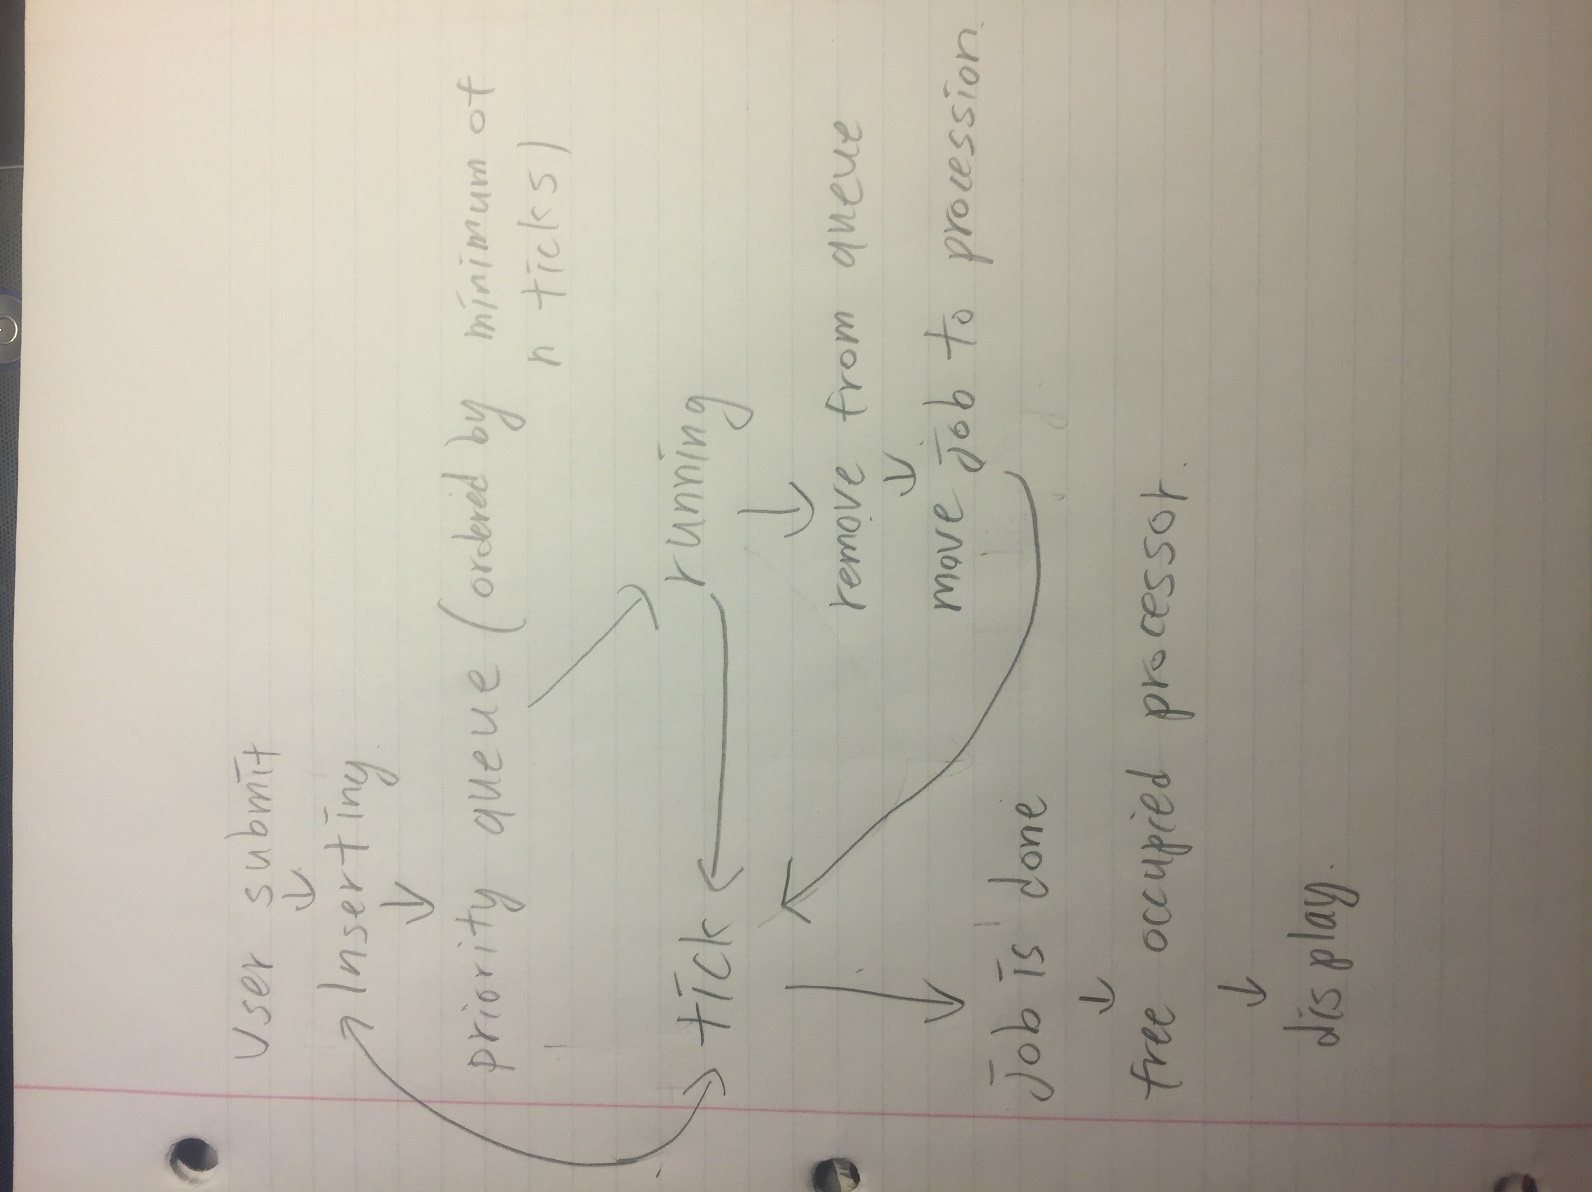 User submit
Inserting.
priority queue (ordered by minimum of
n ticks)
tick
running
remove from queue
move job to procession.
job is done
free occupied processor.
display.